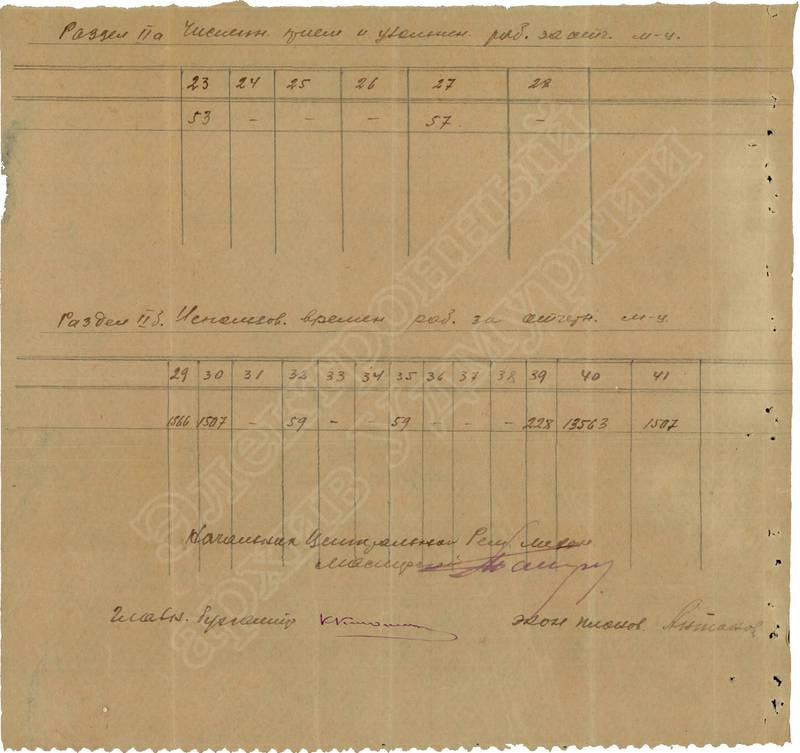 Раздел IIа Числен. прием и увольнен. раб. за отч. м-ц.
23 24 25 26 27 28
53 - - - 57. -
Раздел IIб. Использов. времен раб. за отчетн. м-ц.
29 30 31 32 33 34 35 36 37 38 39 40 41
1566 1507 - 59 - - 59 - - - 228 13563 1507
Начальник Центральной Рем. механ.
Мастерской
Главн. бухгалтер
экон планов.
Электронный
архив Удмуртии